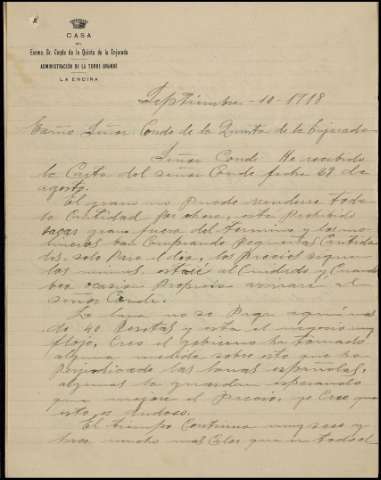 CASA
DEL
Excmo. Sr. Conde de la Quinta de la Enjarada
ADMINISTRACIÓN DE LA TORRE GRANDE
LA ENCINA
Septiembre-10-1918
Exmo Señor Conde de la Quinta de la Enjarada
Señor Conde He recibido
la Carta del señor Conde fecha 29 de
agosto.
El grano no puede venderse toda
la Cantidad por ahora, esta Prohibido
sagar grano fuera del termino y los mo-
lineros ban Comprando Pequeñas Cantida
des, solo Para el dia, los Precios siguen
los mismos, estaré al Cuidado y Cuando
bea ocasion Propicia avisaré al
señor Conde.
La lana no se Paga aqui mas
de 40 Pesetas y esta el negocio muy
flojo, Creo el gobierno ha tomado
alguna medida sobre esto que ha
Perjudicado las lanas españolas,
algunos la guardan esperando
que mejore el Precio, yo Creo que
esto es dudoso.
El tiempo Continua muy seco y
hace mucho mas Calor que en todo el